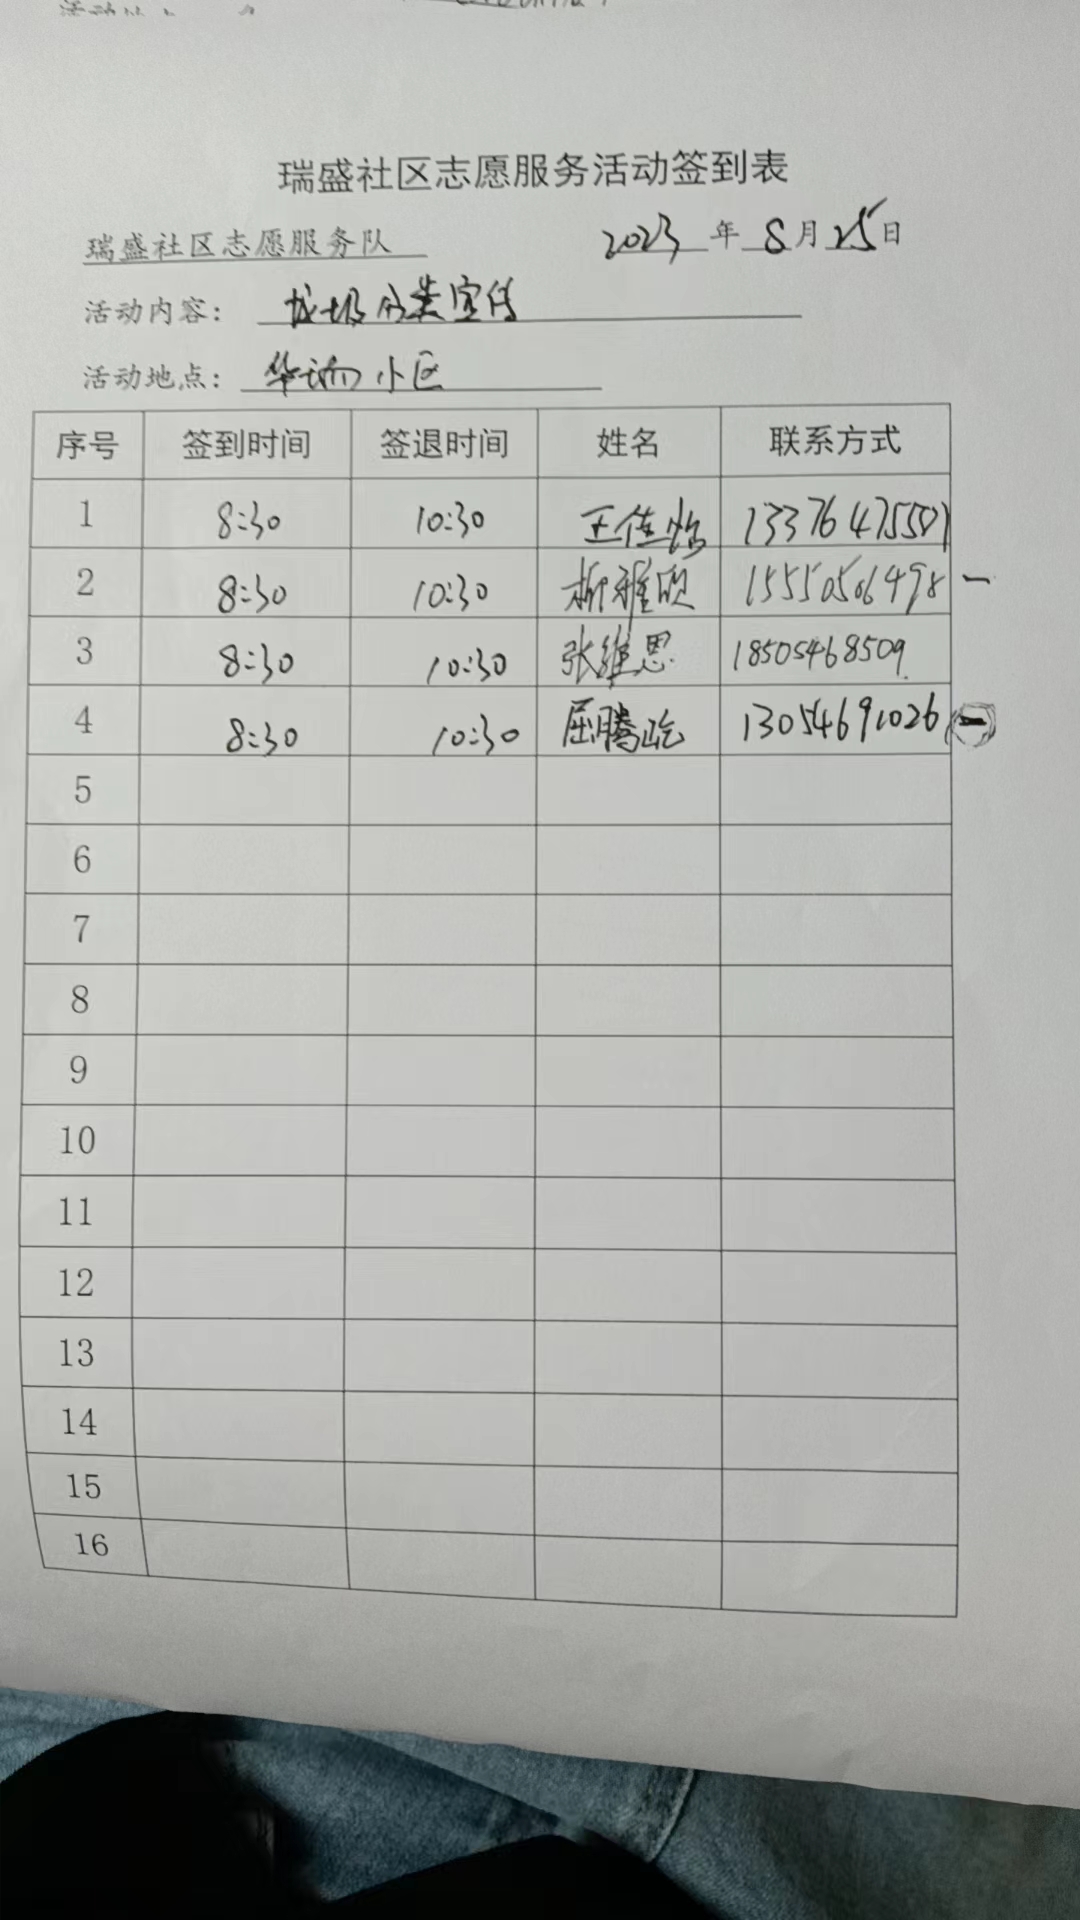 瑞盛社区志愿服务活动签到表
瑞盛社区志愿服务队 2023 年 8 月 25 日
活动内容： 垃圾分类宣传
活动地点： 华瑞小区
序号 签到时间 签退时间 姓名 联系方式
1 8:30 10:30 王佳怡 13376475501
2 8:30 10:30 柳雅颂 15550506498 一
3 8:30 10:30 张维思 18505468509
4 8:30 10:30 屈腾屹 13054691026 一
5
6
7
8
9
10
11
12
13
14
15
16